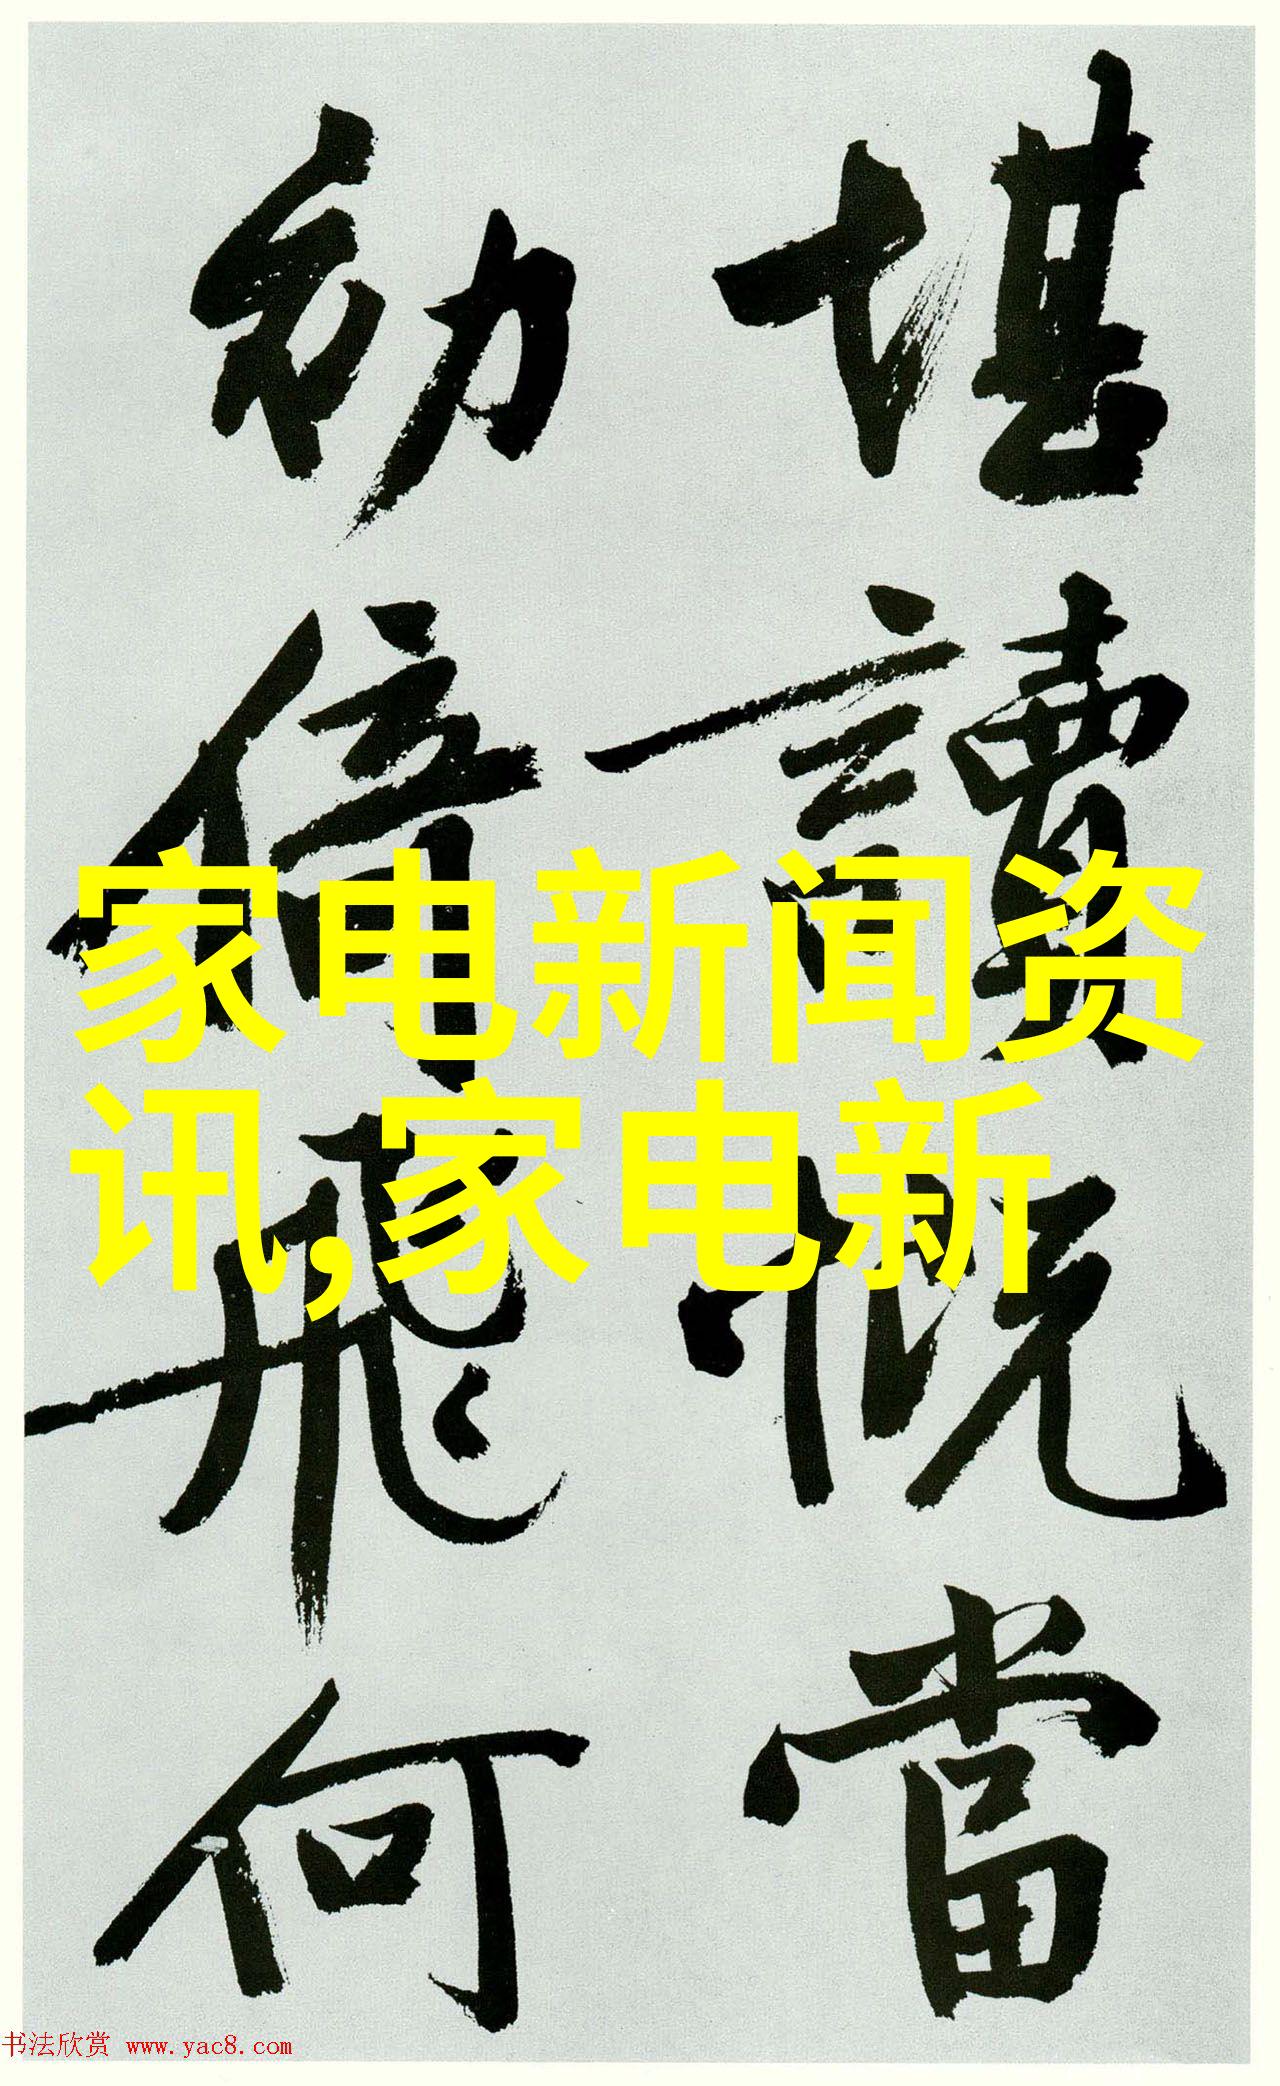 堪讀慨當
幼倍飛何
家电新闻资
讯,家电新
书法欣赏 www.yac8.com